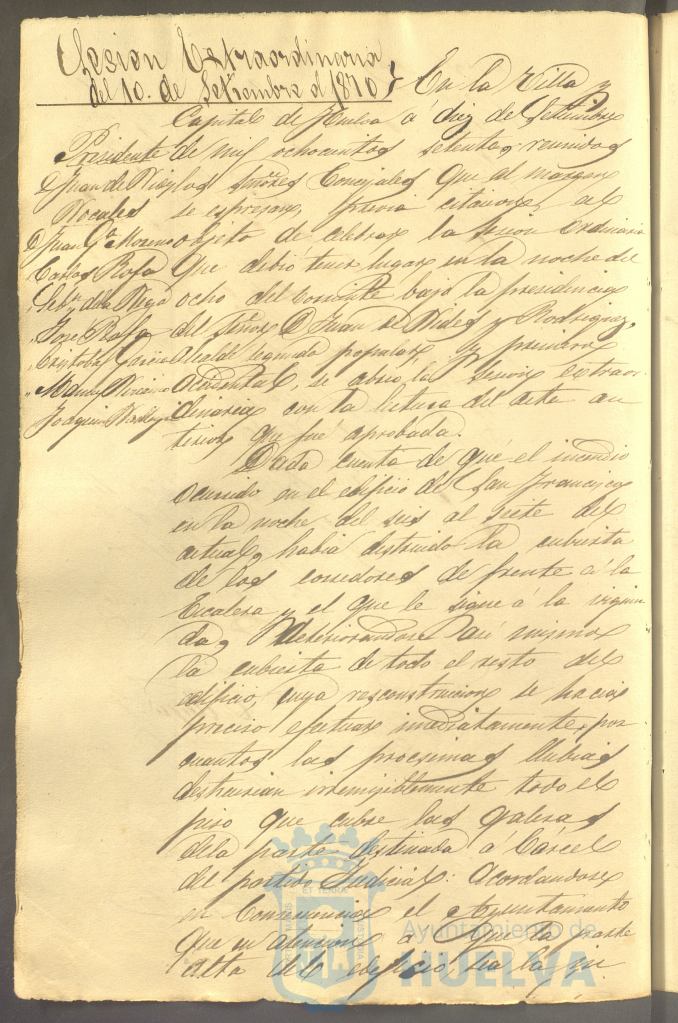 Sesion Extraordinaria
del 10. de Setiembre de 1870
En la Villa y
Capital de Huelva á diez de Setiembre
de mil ochocientos setenta, reunidos
los Señores Concejales que al margen
se espresan, previa citacion al
objeto de celebrar la sesion Ordinaria
que debió tener lugar en la noche del
ocho del corriente bajo la presidencia
del Señor D. Juan de Nieles y Rodriguez,
Alcalde segundo popular, y primero
Accidental, se abrió la sesion extraor
dinaria con la lectura del acta an
terior que fué aprobada.
Presidente
D. Juan de
Vocales
D. Juan Gª Moreno
Carlos Rofa
Sebn. de la Vega
Jose Rofa
Cristobal Garcia
Manuel
Joaquin
Dada cuenta de que el incendio
ocurrido en el edificio de San Francisco
en la noche del seis al siete del
actual, habia destruido la cubierta
de los corredores de frente á la
Escalera y el que le sigue á la
da, deteriorandose asi mismo
la cubierta de todo el resto del
edificio, cuya resconstruccion se hacia
preciso efectuar inmediatamente, por
cuanto las procsimas llubias
destruirian irremisiblemente todo el
piso que cubre las galeras
dela parte destinada á Cárcel
del partido Judicial: Acordandose
en Consecuencia el Ayuntamiento
que en atencion á que la parte
alta del edificio, sea la
Ayuntamiento de
HUELVA